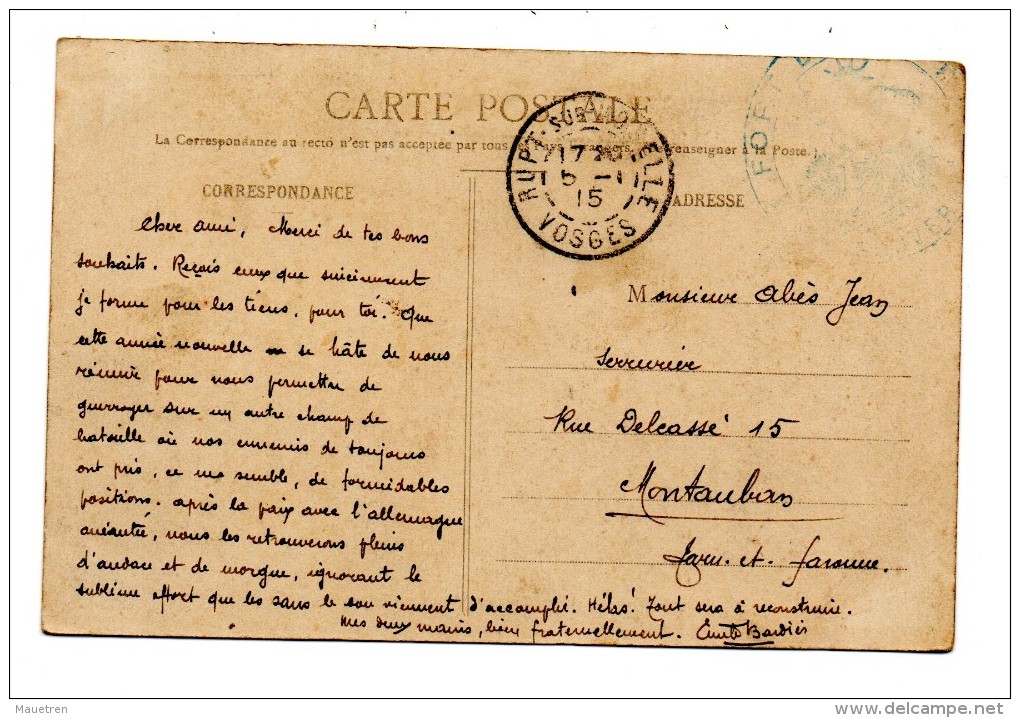 CARTE POSTALE
La Correspondance au recto n'est pas acceptée par tous les Pays Etrangers. renseigner à la Poste.)
RUPT-SUR-MOSELLE
VOSGES
15
FORT
CORRESPONDANCE
ADRESSE
Cher ami, Merci de tes bons
souhaits. Reçois ceux que sincèrement
je forme pour les tiens, pour toi. Que
cette année nouvelle se hâte de nous
réunir pour nous permettre de
guerroyer sur un autre champ de
bataille où nos ennemis de toujours
ont pris, ce me semble, de formidables
positions. Après la paix avec l'Allemagne
anéantie, nous les retrouverons pleins
d'audace et de morgue, ignorant le
sublime effort que les sans le sou viennent d'accomplir. Hélas! Tout sera à reconstruire.
Mes deux mains, bien fraternellement. Emile Bardiès
Monsieur Abès Jean
Serrurier
Rue Delcassé 15
Montauban
Tarn-et-Garonne.
Mauetren
www.delcampe.net